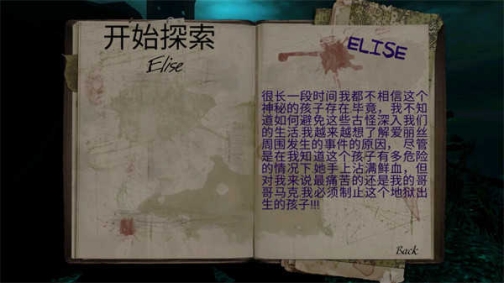 开始探索
Elise
ELISE
很长一段时间我都不相信这个
神秘的孩子存在毕竟，我不知
道如何避免这些古怪深入我们
的生活我越来越想了解爱丽丝
周围发生的事件的原因， 尽管
是在我知道这个孩子有多危险
的情况下她手上沾满鲜血，但
对我来说最痛苦的还是我的哥
哥马克我必须制止这个地狱出
生的孩子!!!
Back